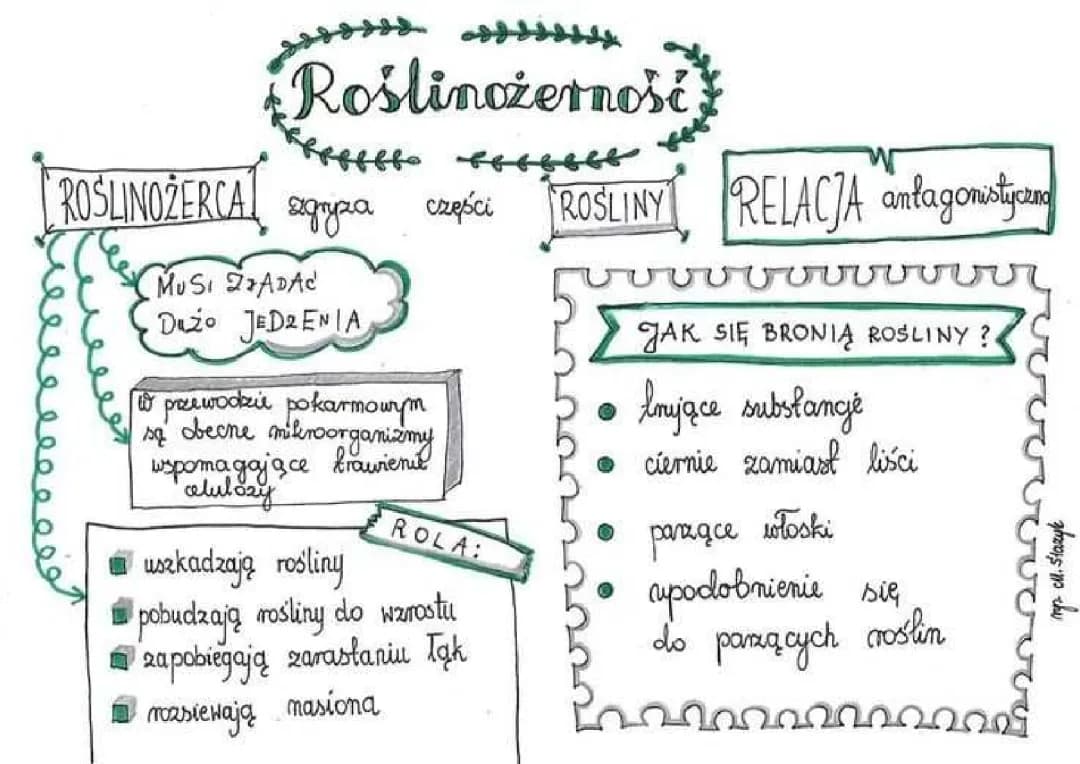 Roślinożerność
ROŚLINOŻERCA zgryza części ROŚLINY
RELACJA antagonistyczna
MUSI ZJADAĆ
DUŻO JEDZENIA
W przewodzie pokarmowym
są obecne mikroorganizmy
wspomagające trawienie
celulozy
ROLA:
uszkadzają rośliny
pobudzają rośliny do wzrostu
zapobiegają zarastaniu łąk
rozsiewają nasiona
JAK SIĘ BRONIĄ ROŚLINY?
trujące substancje
ciernie zamiast liści
parzące włoski
upodobnienie się
do parzących roślin
rys. M. Ślazyk